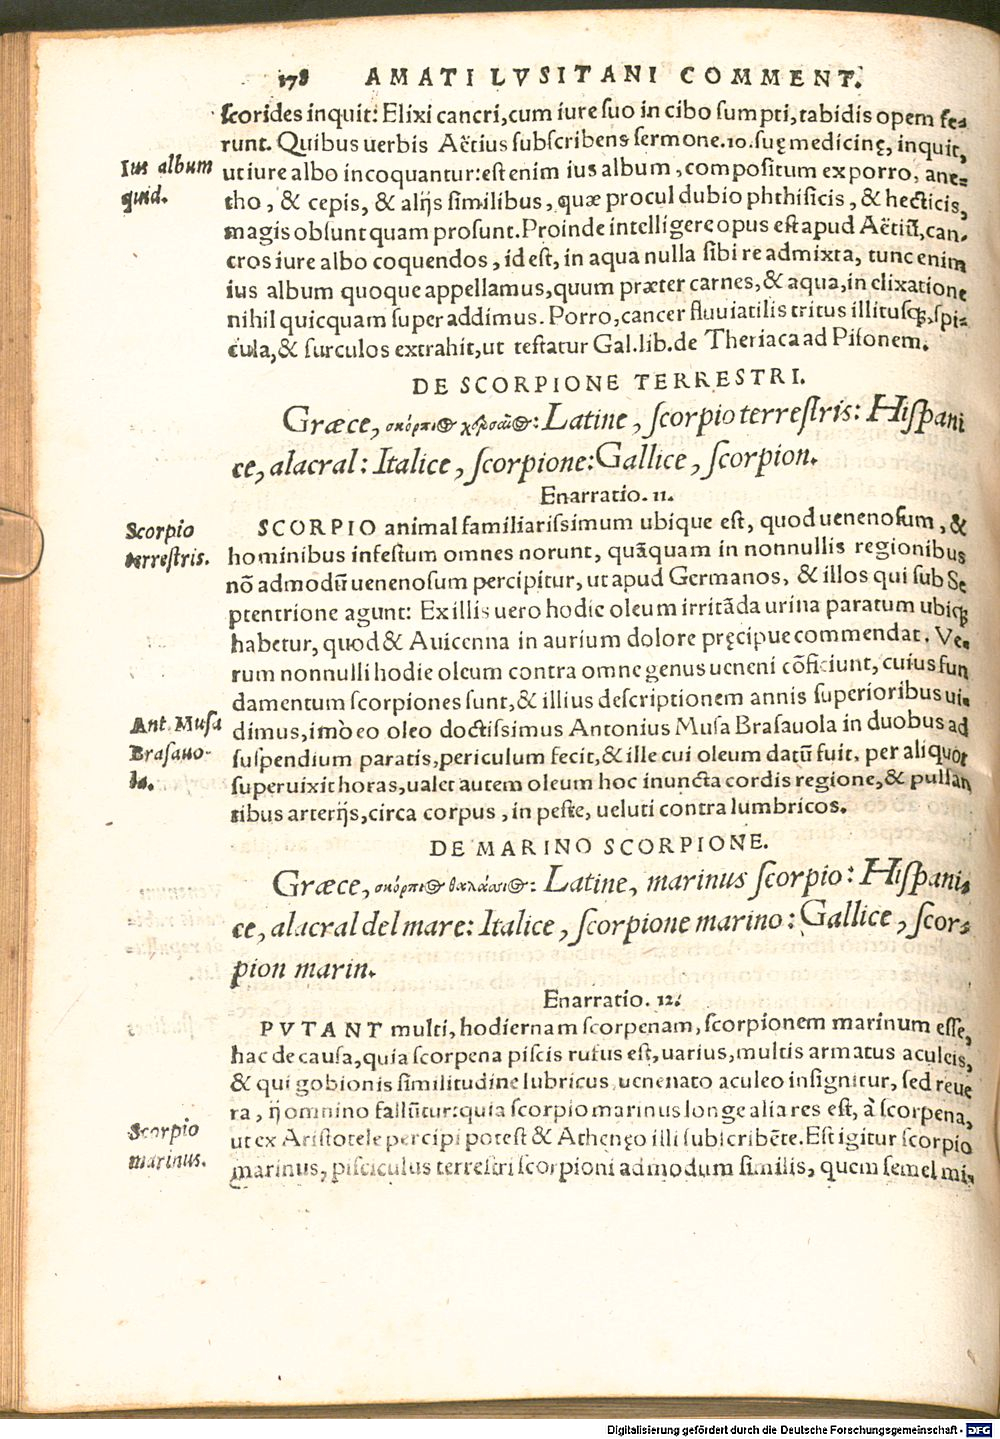 178 AMATI LVSITANI COMMENT.
scorides inquit: Elixi cancri, cum iure suo in cibo sumpti, tabidis opem fe-
runt. Quibus uerbis Aëtius subscribens sermone. 10. suę medicinę, inquit,
Ius album
quid.
ut iure albo incoquantur: est enim ius album, compositum ex porro, ane-
tho, & cepis, & alijs similibus, quæ procul dubio phthisicis, & hecticis,
magis obsunt quam prosunt. Proinde intelligere opus est apud Aëtiũ, can-
cros iure albo coquendos, id est, in aqua nulla sibi re admixta, tunc enim
ius album quoque appellamus, quum præter carnes, & aqua, in elixatione
nihil quicquam superaddimus. Porro, cancer fluuiatilis tritus illitusq́;, spi-
cula, & surculos extrahit, ut testatur Gal. lib. de Theriaca ad Pisonem.
DE SCORPIONE TERRESTRI.
Græce, σκόρπιος χερσαῖος: Latine, scorpio terrestris: Hispani
ce, alacral: Italice, scorpione: Gallice, scorpion.
Enarratio. 11.
Scorpio
terrestris.
SCORPIO animal familiarissimum ubique est, quod uenenosum, &
hominibus infestum omnes norunt, quãquam in nonnullis regionibus
nõ admodũ uenenosum percipitur, ut apud Germanos, & illos qui sub Se
ptentrione agunt: Ex illis uero hodie oleum irritãda urina paratum ubiq;
habetur, quod & Auicenna in aurium dolore pręcipue commendat. Ve-
rum nonnulli hodie oleum contra omne genus ueneni cõficiunt, cuius fun
damentum scorpiones sunt, & illius descriptionem annis superioribus ui-
Ant. Musa
Brasauo-
la.
dimus, imò eo oleo doctissimus Antonius Musa Brasauola in duobus ad
suspendium paratis, periculum fecit, & ille cui oleum datũ fuit, per aliquot
superuixit horas, ualet autem oleum hoc inuncta cordis regione, & pulsan
tibus arterijs, circa corpus, in peste, ueluti contra lumbricos.
DE MARINO SCORPIONE.
Græce, σκόρπιος θαλάσσιος: Latine, marinus scorpio: Hispani-
ce, alacral del mare: Italice, scorpione marino: Gallice, scor-
pion marin.
Enarratio. 12.
PVTANT multi, hodiernam scorpenam, scorpionem marinum esse,
hac de causa, quia scorpena piscis rufus est, uarius, multis armatus aculeis,
& qui gobionis similitudine lubricus, uenenato aculeo insignitur, sed reue
ra, ij omnino fallũtur: quia scorpio marinus longe alia res est, à scorpena,
Scorpio
marinus.
ut ex Aristotele percipi potest & Athenęo illi subscribẽte. Est igitur scorpio
marinus, pisciculus terrestri scorpioni admodum similis, quem semel mi-
Digitalisierung gefördert durch die Deutsche Forschungsgemeinschaft - DFG